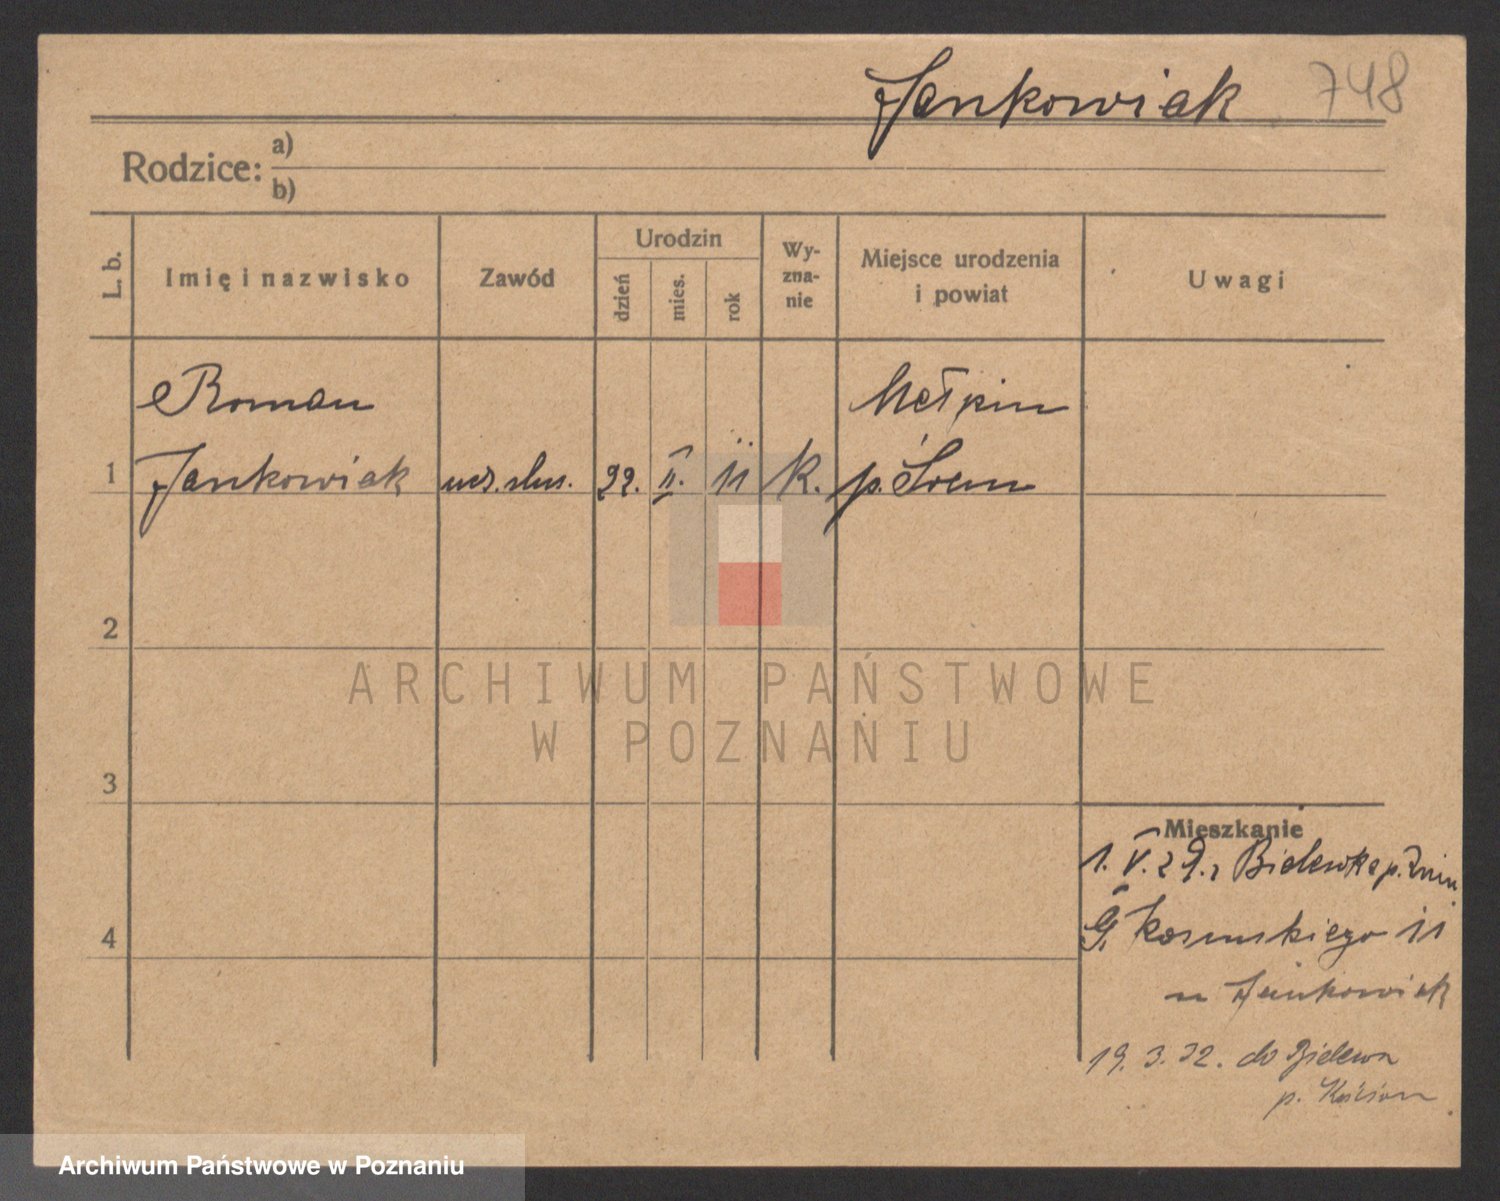 Jankowiak 748
Rodzice: a)
b)
L. b.
Imię i nazwisko
Zawód
Urodzin
dzień
mies.
rok
Wy-
zna-
nie
Miejsce urodzenia
i powiat
Uwagi
Roman
Mełpin
1 Jankowiak ucz. ślus. 22. II. 11 K. p. Śrem
2
3
4
ARCHIWUM PAŃSTWOWE
W POZNANIU
Mieszkanie
1. V. 29. z p. Żnin
11
u Jankowiak
19. 3. 32. do Bielewa
p. Kościan
Archiwum Państwowe w Poznaniu